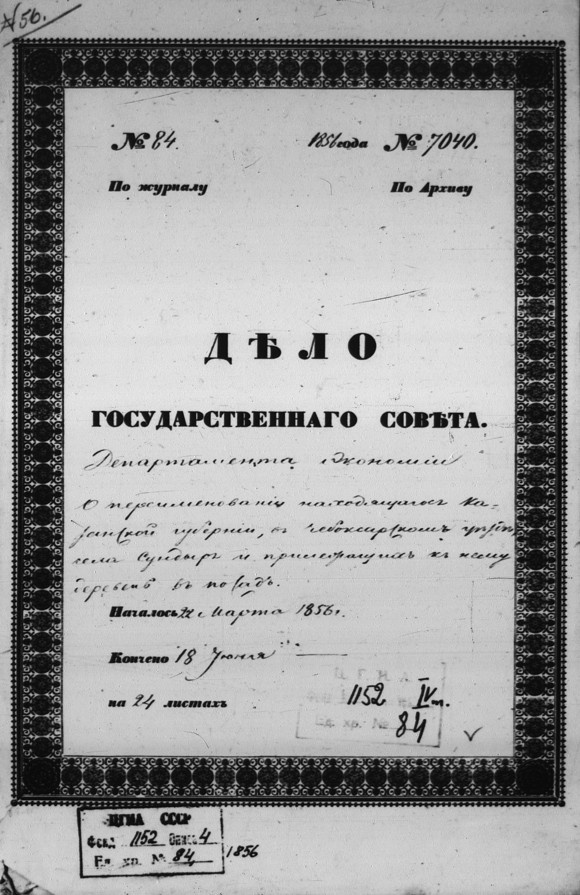 № 56.
№ 84. 1856 года № 7040.
По журналу По Архиву
ДѢЛО
ГОСУДАРСТВЕННАГО СОВѢТА.
Департамента Экономіи
О переименованіи находящагося Ка-
занской губерніи, въ Чебоксарскомъ уѣздѣ,
села Сундырь и прилежащихъ къ нему
деревень въ посадъ.
Началось 22 Марта 1856 г.
Кончено 18 Іюня —
на 24 листахъ
1152 IV т.
84
Ед. хр. №
ЦГИА СССР
Фонд 1152 Опись 4
Ед. хр. № 84
1856